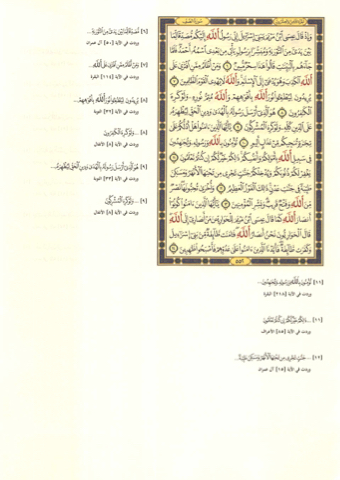 وَإِذْ قَالَ عِيسَى ابْنُ مَرْيَمَ يَا بَنِي إِسْرَائِيلَ إِنِّي رَسُولُ اللَّهِ إِلَيْكُم مُّصَدِّقًا لِّمَا
بَيْنَ يَدَيَّ مِنَ التَّوْرَاةِ وَمُبَشِّرًا بِرَسُولٍ يَأْتِي مِن بَعْدِي اسْمُهُ أَحْمَدُ فَلَمَّا
جَاءَهُم بِالْبَيِّنَاتِ قَالُوا هَذَا سِحْرٌ مُّبِينٌ ٦ وَمَنْ أَظْلَمُ مِمَّنِ افْتَرَى عَلَى
اللَّهِ الْكَذِبَ وَهُوَ يُدْعَى إِلَى الْإِسْلَامِ وَاللَّهُ لَا يَهْدِي الْقَوْمَ الظَّالِمِينَ ٧
يُرِيدُونَ لِيُطْفِئُوا نُورَ اللَّهِ بِأَفْوَاهِهِمْ وَاللَّهُ مُتِمُّ نُورِهِ وَلَوْ كَرِهَ
الْكَافِرُونَ ٨ هُوَ الَّذِي أَرْسَلَ رَسُولَهُ بِالْهُدَى وَدِينِ الْحَقِّ لِيُظْهِرَهُ
عَلَى الدِّينِ كُلِّهِ وَلَوْ كَرِهَ الْمُشْرِكُونَ ٩ يَا أَيُّهَا الَّذِينَ آمَنُوا هَلْ أَدُلُّكُمْ عَلَى
تِجَارَةٍ تُنجِيكُم مِّنْ عَذَابٍ أَلِيمٍ ١٠ تُؤْمِنُونَ بِاللَّهِ وَرَسُولِهِ وَتُجَاهِدُونَ
فِي سَبِيلِ اللَّهِ بِأَمْوَالِكُمْ وَأَنفُسِكُمْ ذَلِكُمْ خَيْرٌ لَّكُمْ إِن كُنتُمْ تَعْلَمُونَ ١١
يَغْفِرْ لَكُمْ ذُنُوبَكُمْ وَيُدْخِلْكُمْ جَنَّاتٍ تَجْرِي مِن تَحْتِهَا الْأَنْهَارُ وَمَسَاكِنَ
طَيِّبَةً فِي جَنَّاتِ عَدْنٍ ذَلِكَ الْفَوْزُ الْعَظِيمُ ١٢ وَأُخْرَى تُحِبُّونَهَا نَصْرٌ
مِّنَ اللَّهِ وَفَتْحٌ قَرِيبٌ وَبَشِّرِ الْمُؤْمِنِينَ ١٣ يَا أَيُّهَا الَّذِينَ آمَنُوا كُونُوا
أَنصَارَ اللَّهِ كَمَا قَالَ عِيسَى ابْنُ مَرْيَمَ لِلْحَوَارِيِّينَ مَنْ أَنصَارِي إِلَى اللَّهِ
قَالَ الْحَوَارِيُّونَ نَحْنُ أَنصَارُ اللَّهِ فَآمَنَت طَّائِفَةٌ مِّن بَنِي إِسْرَائِيلَ
وَكَفَرَت طَّائِفَةٌ فَأَيَّدْنَا الَّذِينَ آمَنُوا عَلَى عَدُوِّهِمْ فَأَصْبَحُوا ظَاهِرِينَ ١٤
[٦] مُصَدِّقًا لِّمَا بَيْنَ يَدَيَّ مِنَ التَّوْرَاةِ...
وردت في الآية [٥٠] آل عمران
[٧] وَمَنْ أَظْلَمُ مِمَّنِ افْتَرَى عَلَى اللَّهِ..
وردت في الآية [١١٤] البقرة
[٨] يُرِيدُونَ لِيُطْفِئُوا نُورَ اللَّهِ بِأَفْوَاهِهِمْ...
وردت في الآية [٣٢] التوبة
[٨] ... وَلَوْ كَرِهَ الْكَافِرُونَ
وردت في الآية [٨] الأنفال
[٩] هُوَ الَّذِي أَرْسَلَ رَسُولَهُ بِالْهُدَى وَدِينِ الْحَقِّ لِيُظْهِرَهُ...
وردت في الآية [٣٣] التوبة
[٩] ... وَلَوْ كَرِهَ الْمُشْرِكُونَ
وردت في الآية [٨] الأنفال
[١١] تُؤْمِنُونَ بِاللَّهِ وَرَسُولِهِ وَتُجَاهِدُونَ...
وردت في الآية [٢١٨] البقرة
[١١] ... ذَلِكُمْ خَيْرٌ لَّكُمْ إِن كُنتُمْ تَعْلَمُونَ
وردت في الآية [٨٥] الأعراف
[١٢] ... جَنَّاتٍ تَجْرِي مِن تَحْتِهَا الْأَنْهَارُ وَمَسَاكِنَ طَيِّبَةً...
وردت في الآية [١٥] آل عمران